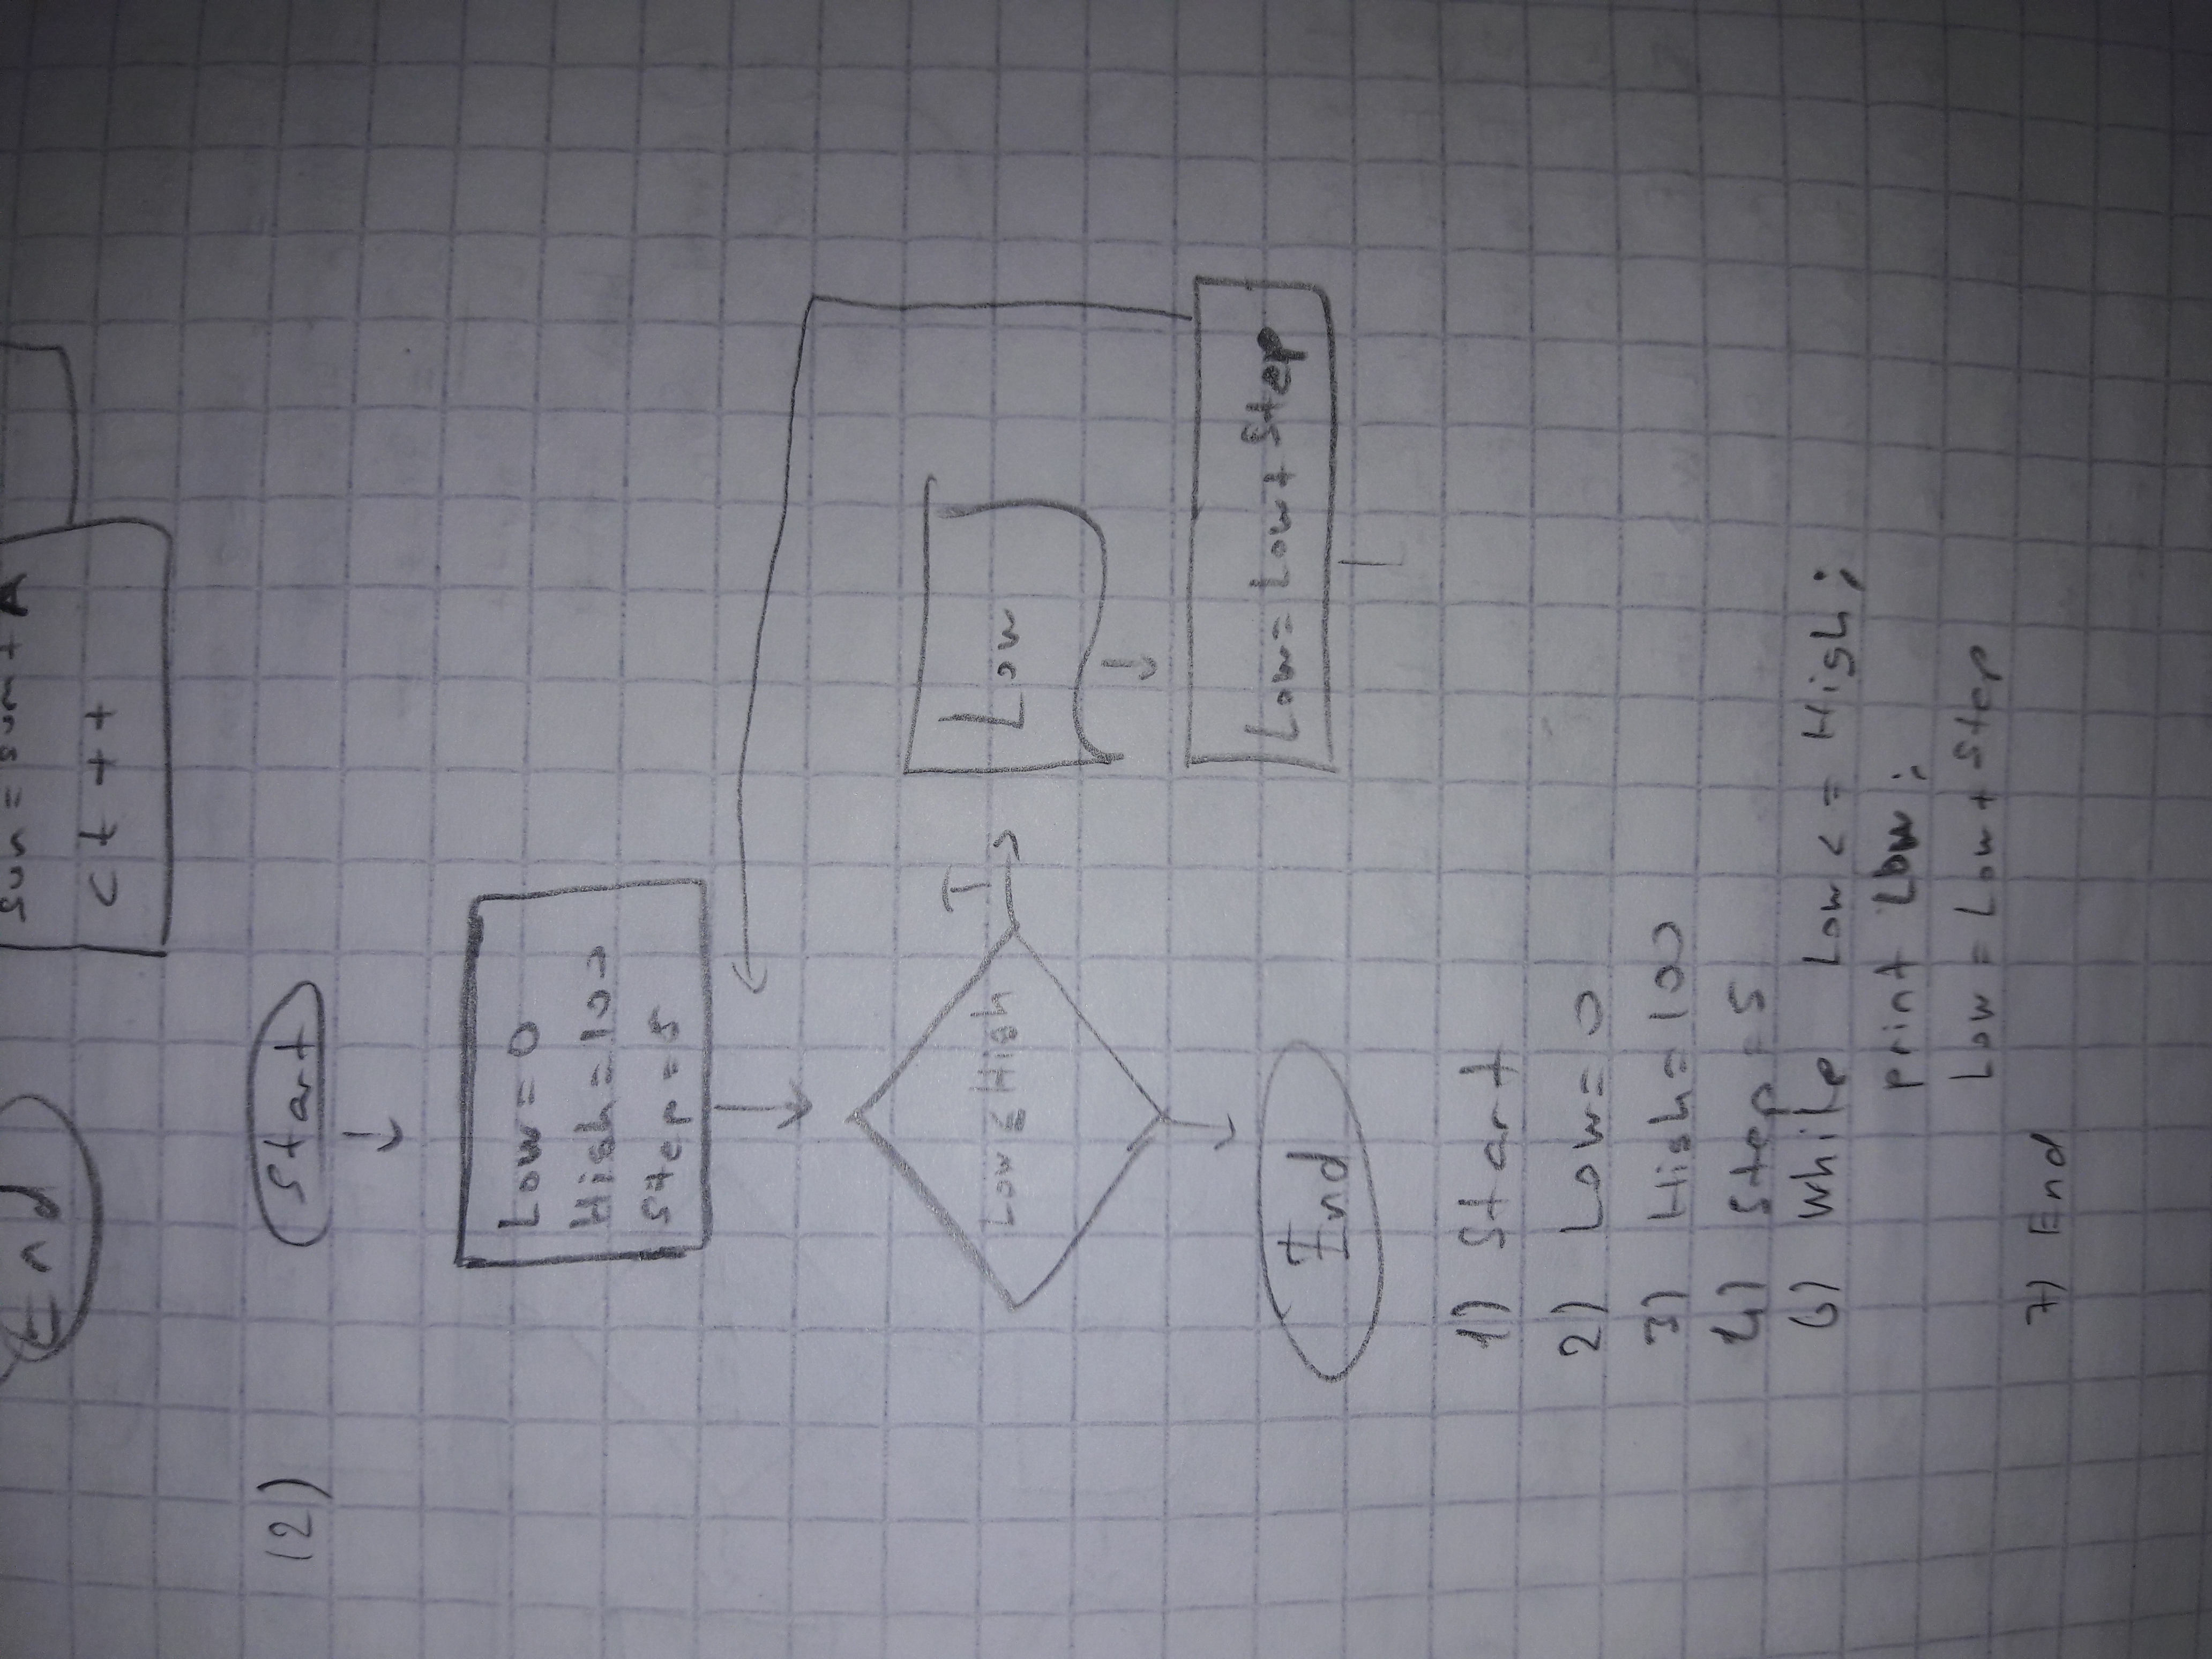 End
sum = sum + A
ct ++
12)
Start
Low = 0
High = 100
Step = 5
Low ≤ High
T
Low
Low = Low + Step
End
1) Start
2) Low = 0
3) High = 100
4) Step = 5
6) While Low < = High;
print Low;
Low = Low + Step
7) End